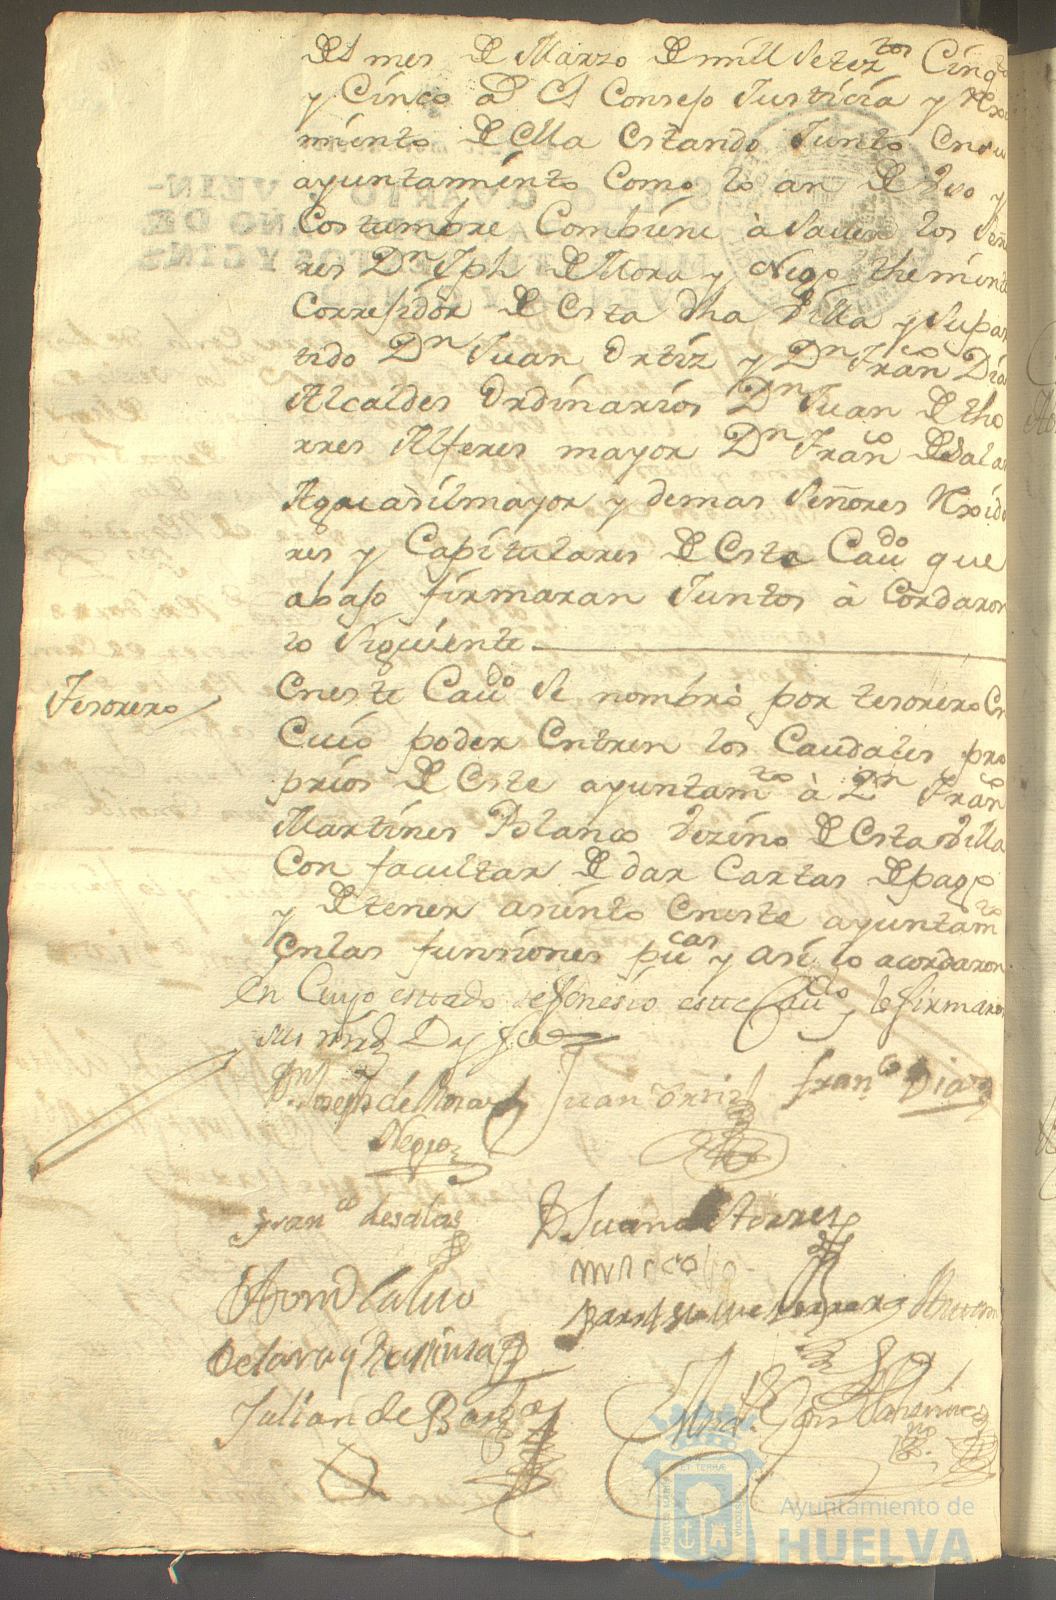 del mes de Marzo de mill Setez.tos Cinq.ta
y Cinco a.s el Consejo Justicia y Rexi
miento de ella estando Junto en su
ayuntamiento Como lo an de Uso y
Costumbre Combiene à Saver los Seño
res Dn Jph de Mora y Negro theniente
Correxidor de esta dha Villa y Su par
tido Dn Juan Ortiz y Dn Fran.co Dias
Alcaldes Ordinarios Dn Juan de tho
rres Alferes mayor Dn Fran.co de Salas
Aguasilmayor y demas Señores Rexido
res y Capitulares de este Cau.do que
abajo firmaran Juntos à Cordaron
lo Siguiente
Tesorero
Eneste Cau.do Se nombrò por tesorero en
Cuio poder Entren los Caudales pro
prios de Este ayuntam.to à Dn Fran.co
Martines Polanco Vezino de Esta Villa
Con facultar de dar Cartas de pago
y de tener asiento Eneste ayuntam.to
Enlas funsiones pu.cas y asi lo acordaron
En Cuyo estado se fenesio este Cau.do y lo firmaron
sus mrds Doy fee
Dn Joseph de Mora y
Negro
Juan Ortiz
Fran.co Diaz
Fran.co de salas
D Juan de torres
Marcos
Julian de Barza
Ayuntamiento de
HUELVA